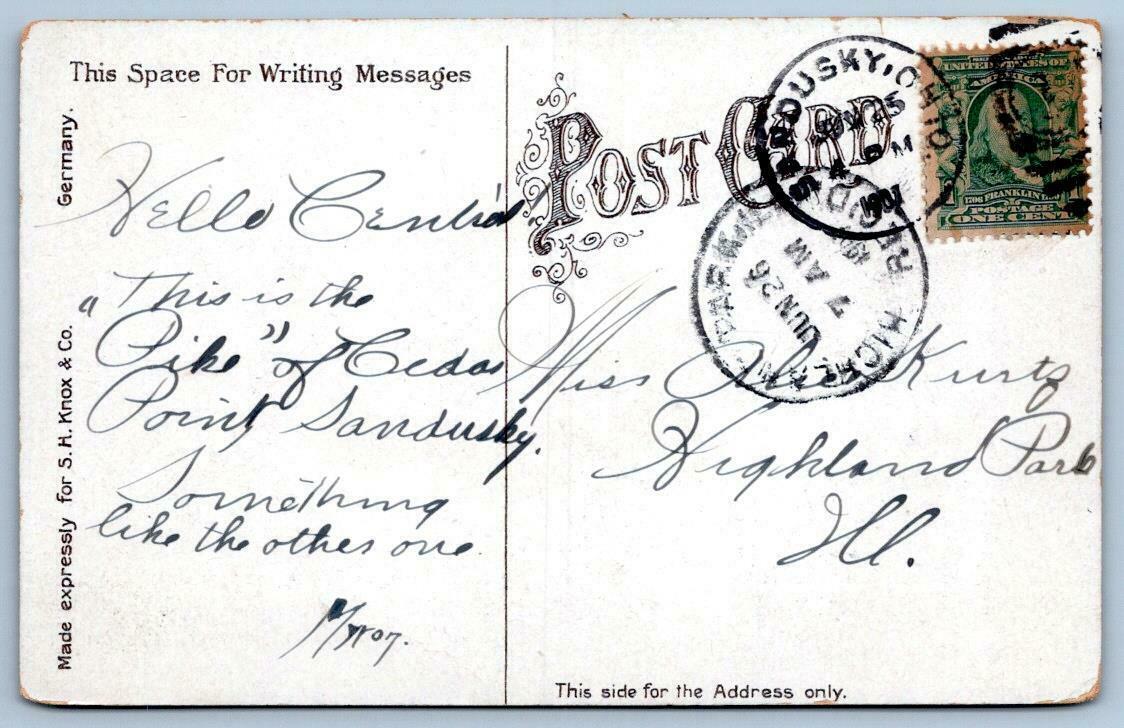 This Space For Writing Messages
Germany.
Made expressly for S. H. Knox & Co.
Hello Central!
"This is the
Pike" of Cedar
Point, Sandusky.
Something
like the other one.
Myron.
POST CARD
SANDUSKY, OHIO.
1907
HIGHLAND PARK
JUN 26
7 AM
UNITED STATES OF
AMERICA
1706 FRANKLIN 1790
POSTAGE
ONE CENT
Miss Kurtz
Highland Park
Ill.
This side for the Address only.